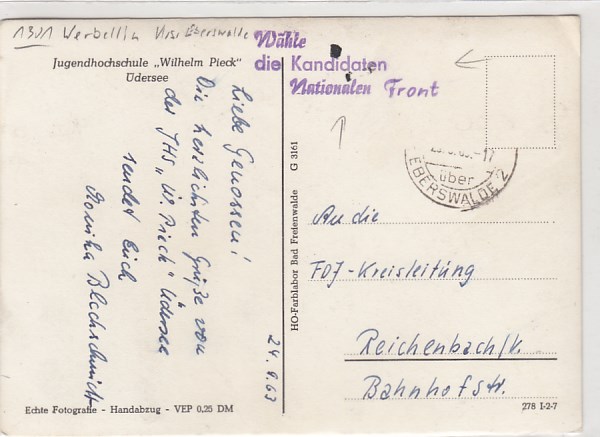 1301 Werbellin Krs. Eberswalde
Jugendhochschule „Wilhelm Pieck"
Üdersee
Liebe Genossen!
Die herzlichsten Grüße von
der JHS „W. Pieck" Üdersee
sendet Euch
Monika Blechschmidt
24.9.63
Echte Fotografie - Handabzug - VEP 0,25 DM
HO-Farblabor Bad Freienwalde G 3161
Wähle
die Kandidaten
Nationalen Front
-17
über
EBERSWALDE 2
An die
FDJ-Kreisleitung
Reichenbach/V.
Bahnhofstr.
278 I-2-7